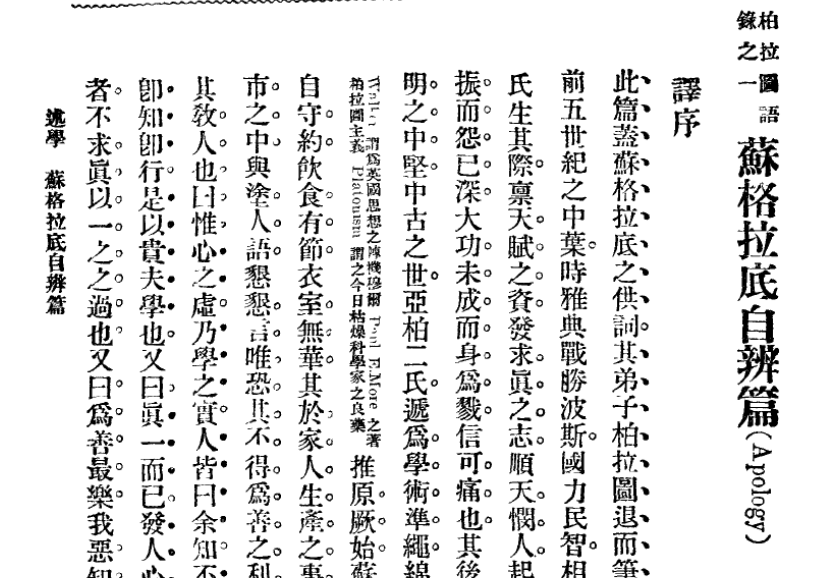 柏拉圖語
錄之一
蘇格拉底自辨篇(Apology)
譯序
此篇蓋蘇格拉底之供詞。其弟子柏拉圖退而筆
前五世紀之中葉。時雅典戰勝波斯。國力民智。相
氏生其際。禀天賦之資。發求眞之志。順天憫人。起
振。而怨已深。大功未成。而身爲戮。信可痛也。其後
明之中堅。中古之世。亞柏二氏。遞爲學術準繩。綿
謂爲英國思想之 Paul E. More 之著
柏拉圖主義 Platonism 謂之今日枯燥科學家之良藥
推原厥始。蘇
自守約。飲食有節。衣室無華。其於家人生產之事
市之中。與塗人語。懇懇言。唯恐其不得爲善之利
其敎人也。曰。惟心之虛。乃學之實。人皆曰余知。不
卽知卽行。是以貴夫學也。又曰。眞一而已。發人心
者。不求眞以一之之過也。又曰。爲善最樂。我惡知
述學 蘇格拉底自辨篇